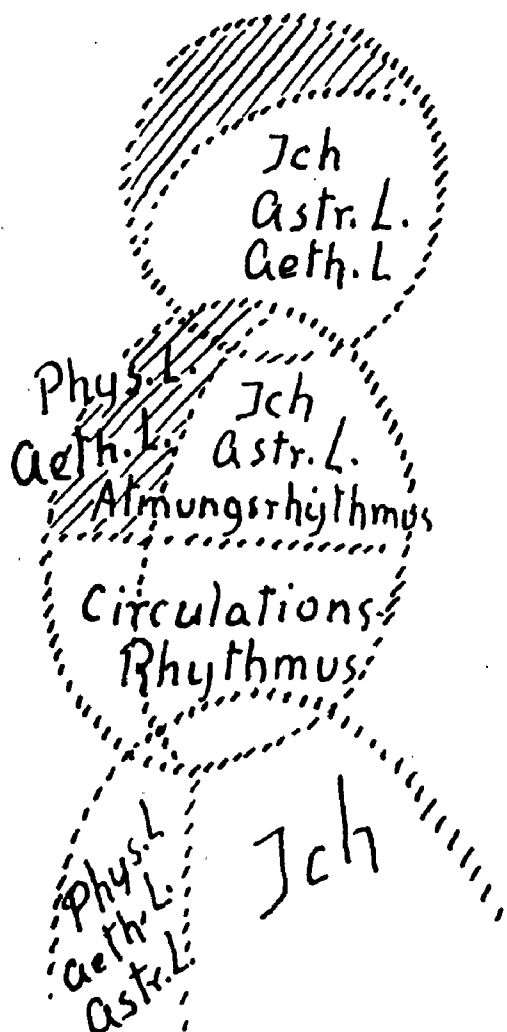 Ich
Astr. L.
Aeth. L
Phys. L.
Aeth. L.
Ich
Astr. L.
Atmungsrhythmus
Circulations-
Rhythmus
Phys. L
Aeth. L.
Astr. L.
Ich